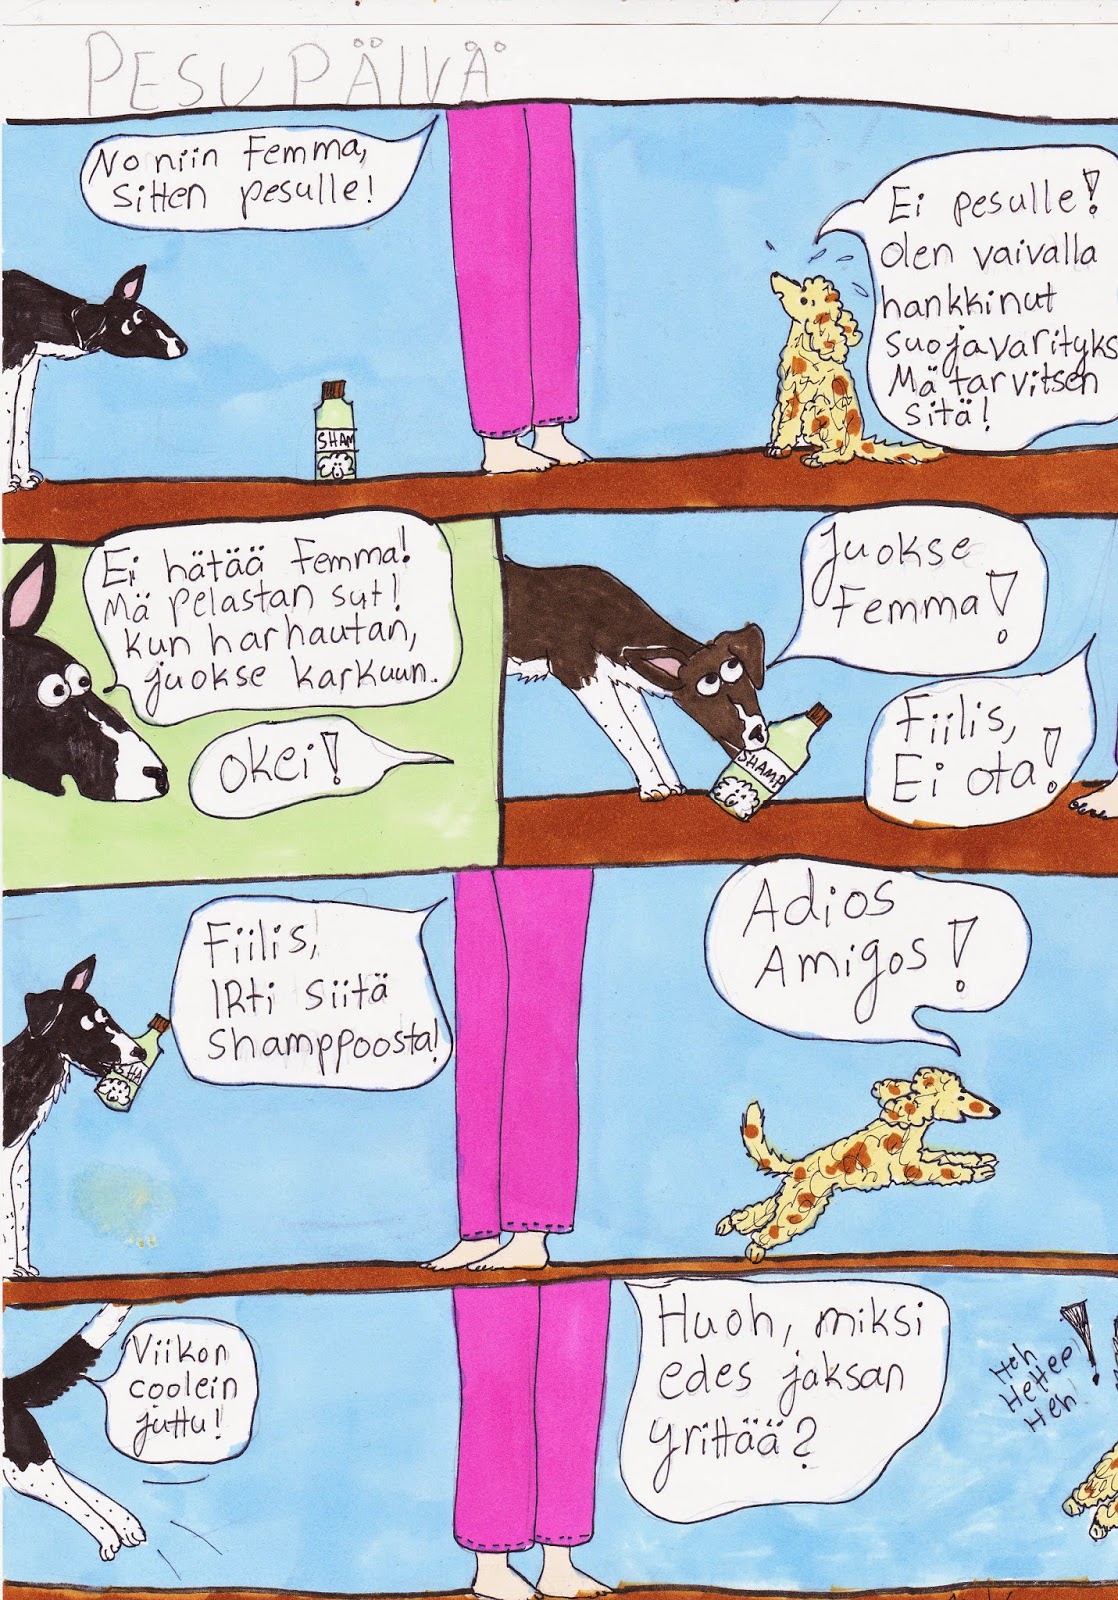 PESUPÄIVÄ
No niin Femma,
sitten pesulle!
Ei pesulle!
olen vaivalla
hankkinut
suojavarityks
Mä tarvitsen
sitä!
SHAM
Ei hätää Femma!
Mä pelastan sut!
kun harhautan,
juokse karkuun.
okei!
Juokse
Femma!
Fiilis,
Ei ota!
SHAMP
Fiilis,
IRti siitä
shamppoosta!
SHA
Adios
Amigos!
Viikon
coolein
juttu!
Huoh, miksi
edes jaksan
yrittää?
Heh
Heh!